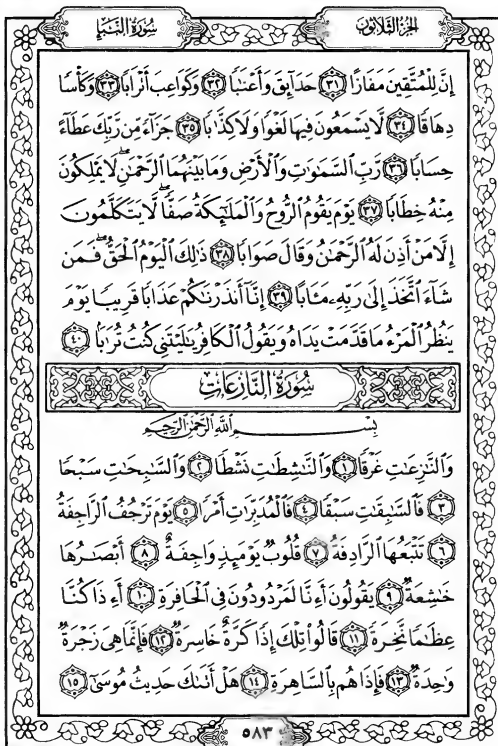 سُورَةُ النَّبَإِ
الجُزْءُ الثَّلَاثُونَ
إِنَّ لِلْمُتَّقِينَ مَفَازًا ﴿٣١﴾ حَدَآئِقَ وَأَعْنَٰبًا ﴿٣٢﴾ وَكَوَاعِبَ أَتْرَابًا ﴿٣٣﴾ وَكَأْسًا
دِهَاقًا ﴿٣٤﴾ لَّا يَسْمَعُونَ فِيهَا لَغْوًا وَلَا كِذَّٰبًا ﴿٣٥﴾ جَزَآءً مِّن رَّبِّكَ عَطَآءً
حِسَابًا ﴿٣٦﴾ رَّبِّ ٱلسَّمَٰوَٰتِ وَٱلْأَرْضِ وَمَا بَيْنَهُمَا ٱلرَّحْمَٰنِ ۖ لَا يَمْلِكُونَ
مِنْهُ خِطَابًا ﴿٣٧﴾ يَوْمَ يَقُومُ ٱلرُّوحُ وَٱلْمَلَٰٓئِكَةُ صَفًّا ۖ لَّا يَتَكَلَّمُونَ
إِلَّا مَنْ أَذِنَ لَهُ ٱلرَّحْمَٰنُ وَقَالَ صَوَابًا ﴿٣٨﴾ ذَٰلِكَ ٱلْيَوْمُ ٱلْحَقُّ ۖ فَمَن
شَآءَ ٱتَّخَذَ إِلَىٰ رَبِّهِۦ مَـَٔابًا ﴿٣٩﴾ إِنَّآ أَنذَرْنَٰكُمْ عَذَابًا قَرِيبًا يَوْمَ
يَنظُرُ ٱلْمَرْءُ مَا قَدَّمَتْ يَدَاهُ وَيَقُولُ ٱلْكَافِرُ يَٰلَيْتَنِى كُنتُ تُرَٰبًا ﴿٤٠﴾
سُورَةُ النَّازِعَاتِ
بِسْمِ ٱللَّهِ ٱلرَّحْمَٰنِ ٱلرَّحِيمِ
وَٱلنَّٰزِعَٰتِ غَرْقًا ﴿١﴾ وَٱلنَّٰشِطَٰتِ نَشْطًا ﴿٢﴾ وَٱلسَّٰبِحَٰتِ سَبْحًا
﴿٣﴾ فَٱلسَّٰبِقَٰتِ سَبْقًا ﴿٤﴾ فَٱلْمُدَبِّرَٰتِ أَمْرًا ﴿٥﴾ يَوْمَ تَرْجُفُ ٱلرَّاجِفَةُ
﴿٦﴾ تَتْبَعُهَا ٱلرَّادِفَةُ ﴿٧﴾ قُلُوبٌ يَوْمَئِذٍ وَاجِفَةٌ ﴿٨﴾ أَبْصَٰرُهَا
خَٰشِعَةٌ ﴿٩﴾ يَقُولُونَ أَءِنَّا لَمَرْدُودُونَ فِى ٱلْحَافِرَةِ ﴿١٠﴾ أَءِذَا كُنَّا
عِظَٰمًا نَّخِرَةً ﴿١١﴾ قَالُوا۟ تِلْكَ إِذًا كَرَّةٌ خَاسِرَةٌ ﴿١٢﴾ فَإِنَّمَا هِىَ زَجْرَةٌ
وَٰحِدَةٌ ﴿١٣﴾ فَإِذَا هُم بِٱلسَّاهِرَةِ ﴿١٤﴾ هَلْ أَتَىٰكَ حَدِيثُ مُوسَىٰٓ ﴿١٥﴾
٥٨٣